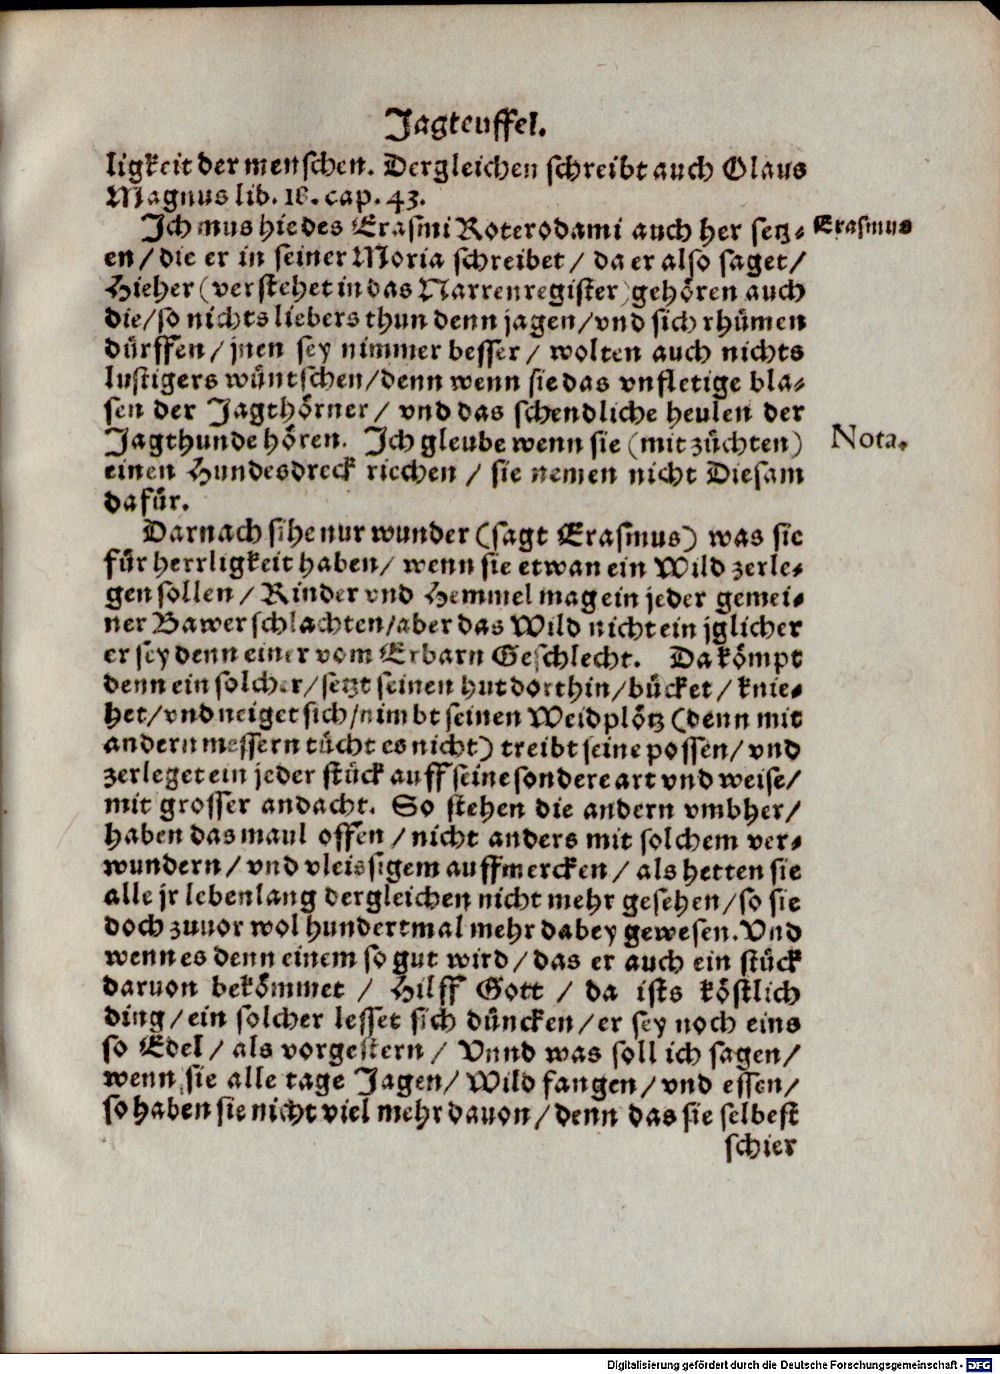 Jagteuffel.
ligkeit der menschen. Dergleichen schreibt auch Olaus
Magnus lib. 18. cap. 43.
Ich mus hie des Erasmi Roterodami auch her setz-
Erasmus
en / die er in seiner Moria schreibet / da er also saget /
Hieher (verstehet in das Narrenregister) gehören auch
die / so nichts liebers thun denn jagen / vnd sich rhümen
dürffen / jnen sey nimmer besser / wolten auch nichts
lustigers wüntschen / denn wenn sie das vnfletige bla-
sen der Jagthörner / vnd das schendliche heulen der
Jagthunde hören. Ich gleube wenn sie (mit züchten)
Nota.
einen Hundesdreck riechen / sie nemen nicht Diesam
dafür.
Darnach sihe nur wunder (sagt Erasmus) was sie
für herrligkeit haben / wenn sie etwan ein Wild zerle-
gen sollen / Rinder vnd Hemmel mag ein jeder gemei-
ner Bawer schlachten / aber das Wild nicht ein jglicher
er sey denn einer vom Erbarn Geschlecht. Da kömpt
denn ein solcher / setzt seinen hut dorthin / bücket / knie-
het / vnd neiget sich / nimbt seinen Weidplötz (denn mit
andern messern tücht es nicht) treibt seine possen / vnd
zerleget ein jeder stück auff seine sondere art vnd weise /
mit grosser andacht. So stehen die andern vmbher /
haben das maul offen / nicht anders mit solchem ver-
wundern / vnd vleissigem auffmercken / als hetten sie
alle jr lebenlang dergleichen nicht mehr gesehen / so sie
doch zuuor wol hundertmal mehr dabey gewesen. Vnd
wenn es denn einem so gut wird / das er auch ein stück
daruon bekömmet / Hilff Gott / da ists köstlich
ding / ein solcher lesset sich düncken / er sey noch eins
so Edel / als vorgestern / Vnnd was soll ich sagen /
wenn sie alle tage Jagen / Wild fangen / vnd essen /
so haben sie nicht viel mehr dauon / denn das sie selbest
schier
Digitalisierung gefördert durch die Deutsche Forschungsgemeinschaft - DFG